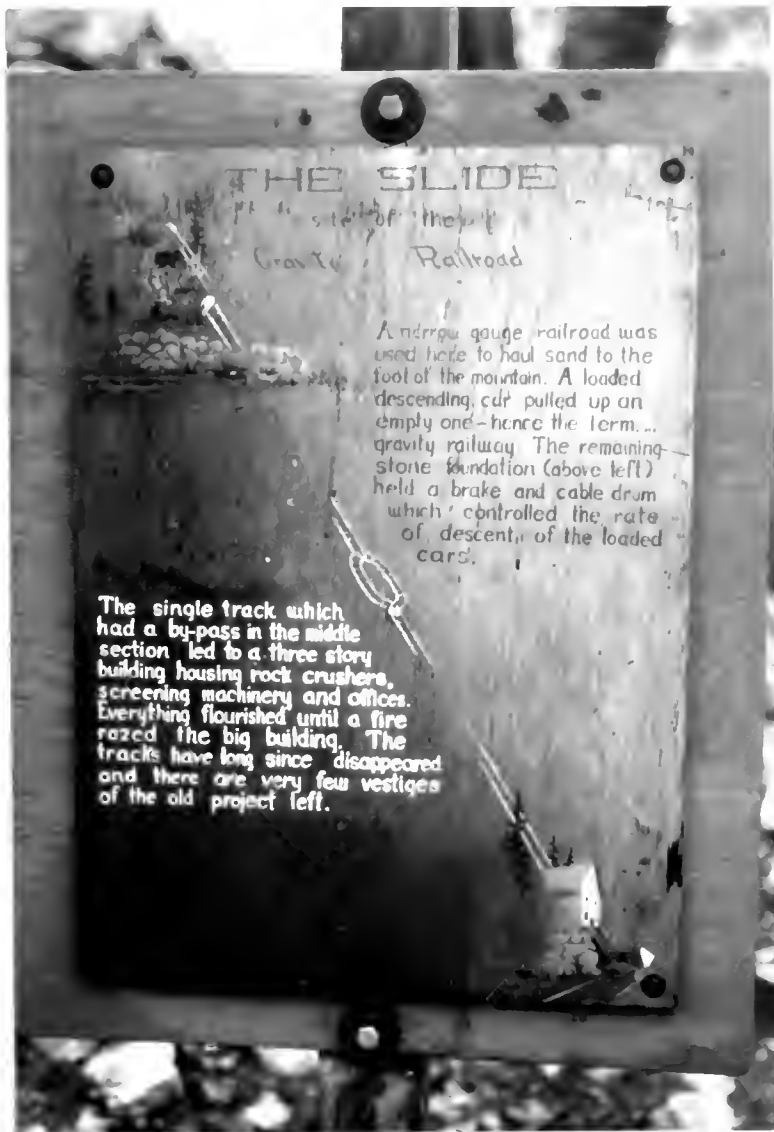 THE SLIDE
site of the
Gravity Railroad
A narrow gauge railroad was
used here to haul sand to the
foot of the mountain. A loaded
descending car pulled up an
empty one - hence the term...
gravity railway. The remaining
stone foundation (above left)
held a brake and cable drum
which controlled the rate
of descent of the loaded
cars.
The single track which
had a by-pass in the middle
section led to a three story
building housing rock crushers,
screening machinery and offices.
Everything flourished until a fire
razed the big building. The
tracks have long since disappeared
and there are very few vestiges
of the old project left.